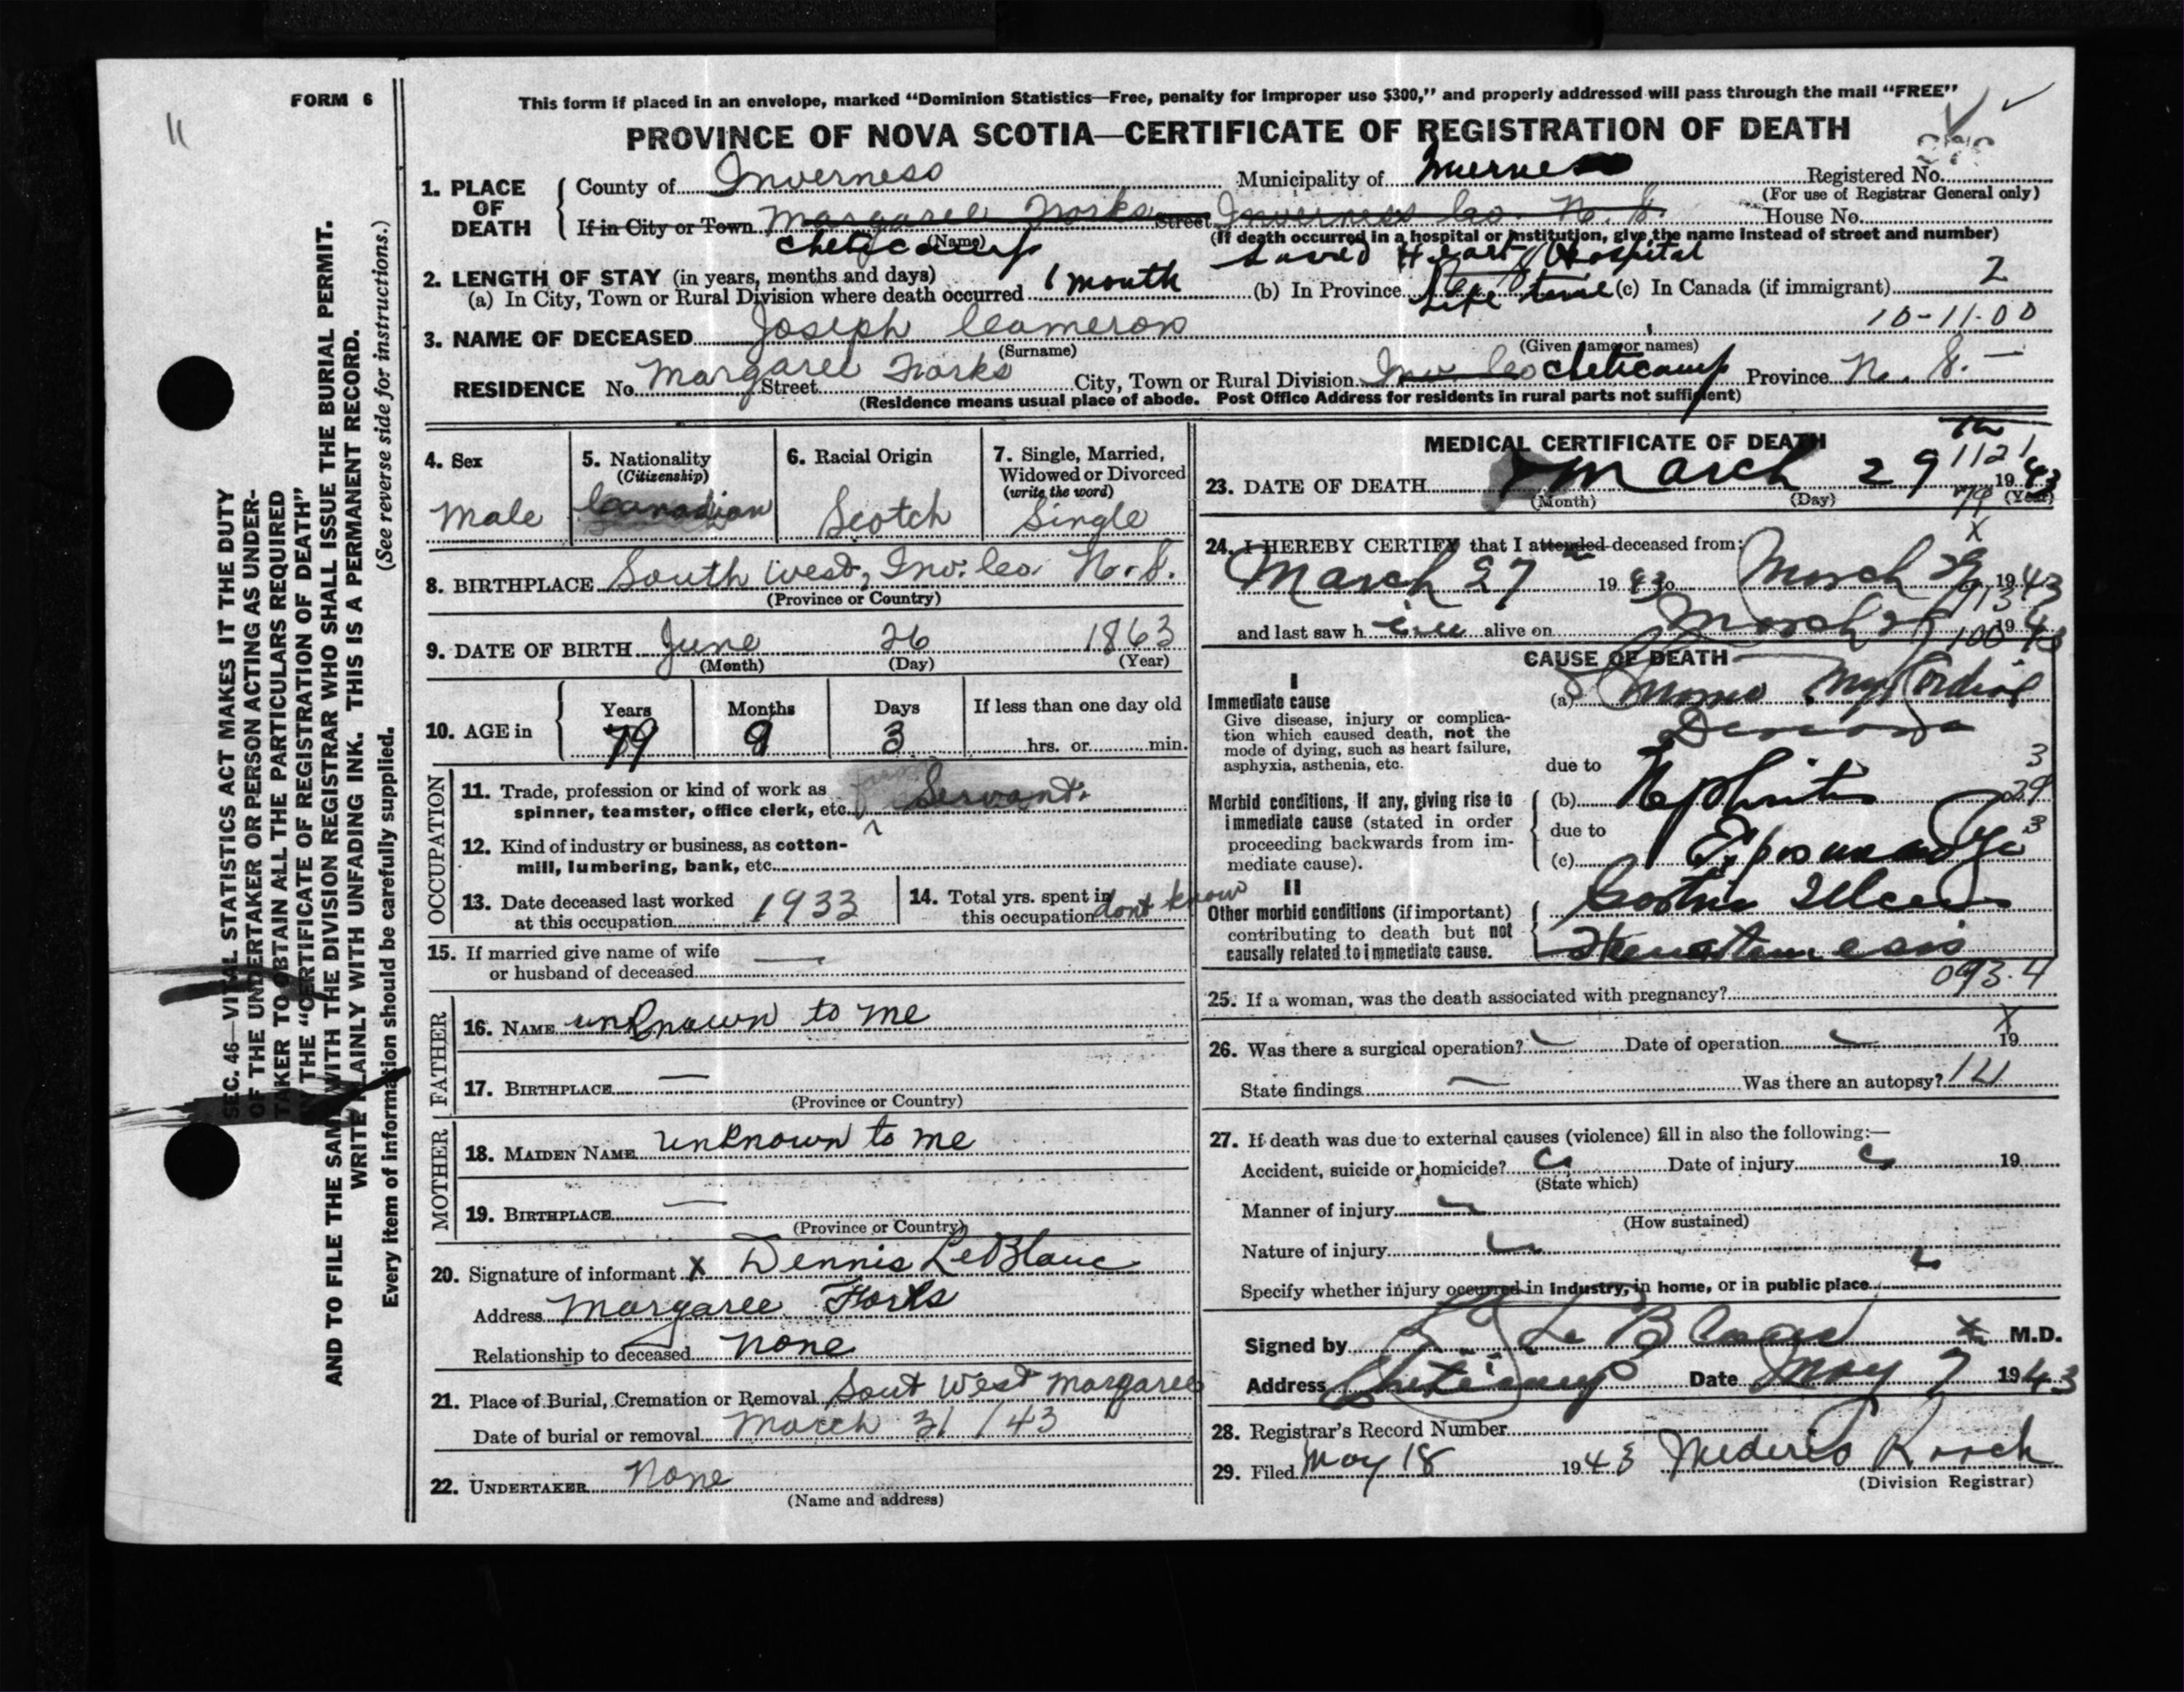 FORM 6
11
This form if placed in an envelope, marked “Dominion Statistics—Free, penalty for improper use $300,” and properly addressed will pass through the mail “FREE”
PROVINCE OF NOVA SCOTIA—CERTIFICATE OF REGISTRATION OF DEATH
1. PLACE OF DEATH
County of Inverness Municipality of Registered No.
(For use of Registrar General only)
If in City or Town Margaree Forks Street Inverness Co. N. S. House No.
Cheticamp (Name) (If death occurred in a hospital or institution, give the name instead of street and number)
Heart Hospital
2. LENGTH OF STAY (in years, months and days)
(a) In City, Town or Rural Division where death occurred 1 month (b) In Province Life time (c) In Canada (if immigrant) 2
10-11-00
3. NAME OF DECEASED Joseph Cameron
(Surname) (Given name or names)
RESIDENCE No. Margaree Forks Street City, Town or Rural Division Inv. Co Cheticamp Province N. S. —
(Residence means usual place of abode. Post Office Address for residents in rural parts not sufficient)
4. Sex
Male
5. Nationality
(Citizenship)
Canadian
6. Racial Origin
Scotch
7. Single, Married, Widowed or Divorced
(write the word)
Single
8. BIRTHPLACE South West, Inv. Co. N. S.
(Province or Country)
9. DATE OF BIRTH June 26 1863
(Month) (Day) (Year)
10. AGE in
Years Months Days If less than one day old
79 9 3 hrs. or min.
OCCUPATION
11. Trade, profession or kind of work as spinner, teamster, office clerk, etc. Servant
12. Kind of industry or business, as cotton-mill, lumbering, bank, etc.
13. Date deceased last worked at this occupation 1933
14. Total yrs. spent in this occupation dont know
15. If married give name of wife or husband of deceased —
FATHER
16. NAME unknown to me
17. BIRTHPLACE —
(Province or Country)
MOTHER
18. MAIDEN NAME unknown to me
19. BIRTHPLACE —
(Province or Country)
20. Signature of informant X Dennis LeBlanc
Address Margaree Forks
Relationship to deceased None
21. Place of Burial, Cremation or Removal Sout West Margaree
Date of burial or removal March 31 / 43
22. UNDERTAKER None
(Name and address)
MEDICAL CERTIFICATE OF DEATH
1121
23. DATE OF DEATH March 29 1943
(Month) (Day) (Year)
24. I HEREBY CERTIFY that I attended deceased from:
March 27 1943 to March 29 1943
and last saw h alive on March 1943
CAUSE OF DEATH
I
Immediate cause
Give disease, injury or complication which caused death, not the mode of dying, such as heart failure, asphyxia, asthenia, etc.
(a) Myocardial
due to
Morbid conditions, if any, giving rise to immediate cause (stated in order proceeding backwards from immediate cause).
(b) Nephritis
due to
(c)
II
Other morbid conditions (if important) contributing to death but not causally related to immediate cause.
Hematemesis
093.4
25. If a woman, was the death associated with pregnancy?
26. Was there a surgical operation? Date of operation 19
State findings — Was there an autopsy?
27. If death was due to external causes (violence) fill in also the following:—
Accident, suicide or homicide? Date of injury 19
(State which)
Manner of injury
(How sustained)
Nature of injury
Specify whether injury occurred in industry, in home, or in public place
Signed by LeBlanc M.D.
Address Cheticamp Date May 7 1943
28. Registrar's Record Number
29. Filed May 18 1943 Roach
(Division Registrar)
SEC. 46—VITAL STATISTICS ACT MAKES IT THE DUTY
OF THE UNDERTAKER OR PERSON ACTING AS UNDER-
TAKER TO OBTAIN ALL THE PARTICULARS REQUIRED
THE “CERTIFICATE OF REGISTRATION OF DEATH”
AND TO FILE THE SAME WITH THE DIVISION REGISTRAR WHO SHALL ISSUE THE BURIAL PERMIT.
WRITE PLAINLY WITH UNFADING INK. THIS IS A PERMANENT RECORD.
Every item of information should be carefully supplied. (See reverse side for instructions.)